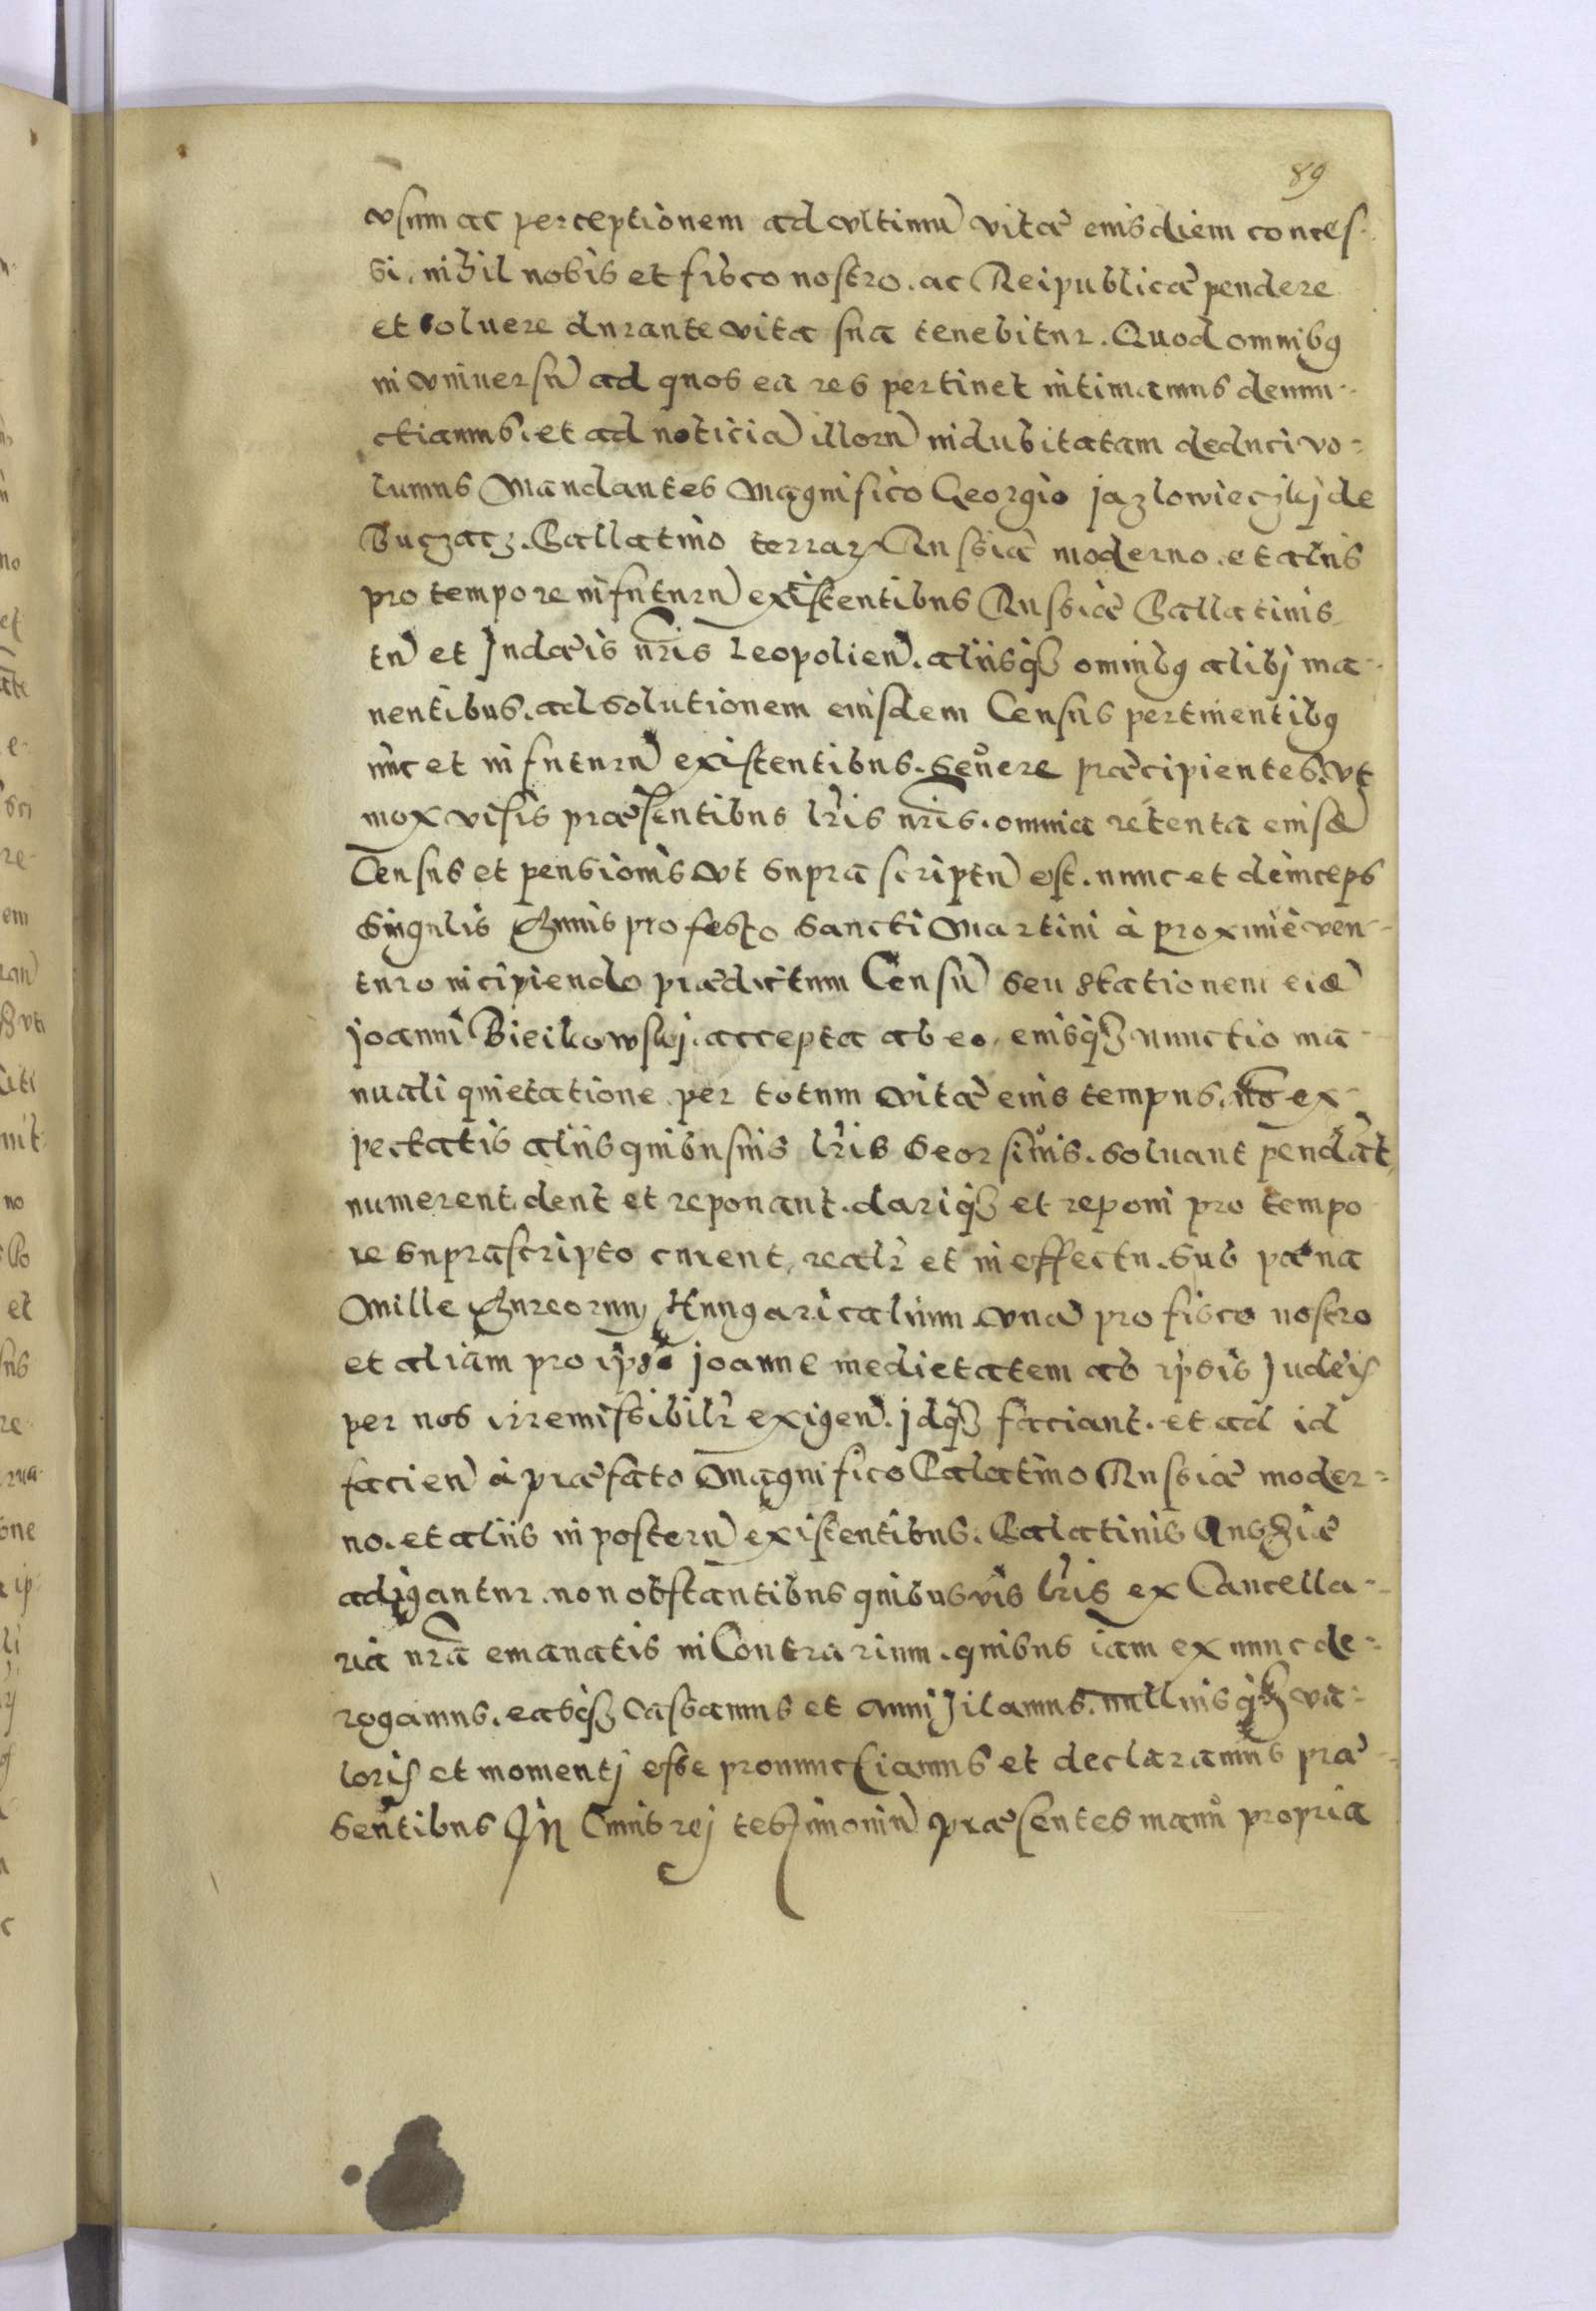 89
vsum ac perceptionem ad vltimũ vitæ eiusdiem conces-
si. nihil nobis et fisco nostro. ac Reipublicæ pendere
et soluere durante vita sua tenebitur. Quod omnibꝰ
in vniuersũ ad quos ea res pertinet intimamus denun-
ctiamus. et ad noticiã illorũ indubitatam deduci vo=
lumus Mandantes Magnifico Georgio jazlowieczkj de
Buczacz. Pallatino terrarꝝ Russiæ moderno. et aliis
pro tempore in futurũ existentibus Russiæ Pallatinis
tũ et Judæis nr̃is Leopolień. aliisqꝫ omnibꝰ alibj ma-
nentibus. ad solutionem eiusdem Census pertinentibꝰ
nũc et in futurũ existentibus. seuere præcipientes. vt
mox visis præsentibus lr̃is nr̃is. omnia retenta eiusdẽ
Census et pensionis vt supra scriptũ est. nunc et deinceps
singulis Annis pro festo Sancti Martini à proximè ven-
turo incipiendo prædictum Censũ seu stationem eidẽ
joanni Bieikowskj. accepta ab eo, eiusqꝫ nunctio ma-
nuali quietatione per totum vitæ eius tempus. nõ ex-
pectatis aliis quibusuis lr̃is seorsiuis. soluant pendãt,
numerent, dent et reponant. dariqꝫ et reponi pro tempo
re suprascripto curent, realr̃ et in effectu. sub pæna
Mille Aureorum Hungaricalium vnã pro fisco nostro
et aliam pro ipso joanne medietatem ab ipsis Judeis
per nos irremissibilr̃ exigeń. jdqꝫ faciant. et ad id
facień à præfato Magnifico Palatino Russiæ moder=
no. et aliis in posterũ existentibus. Palatinis Russiæ
adigantur. non obstantibus quibusuis lr̃is ex Cancella-
ria nr̃a emanatis in Contrarium. quibus iam ex nunc de=
rogamus. easqꝫ Cassamus et annijilamus. nulliusqꝫ va-
loris et momentj esse pronunctiamus et declaramus præ-
sentibus In Cuius rej testimoniũ præsentes manũ propria